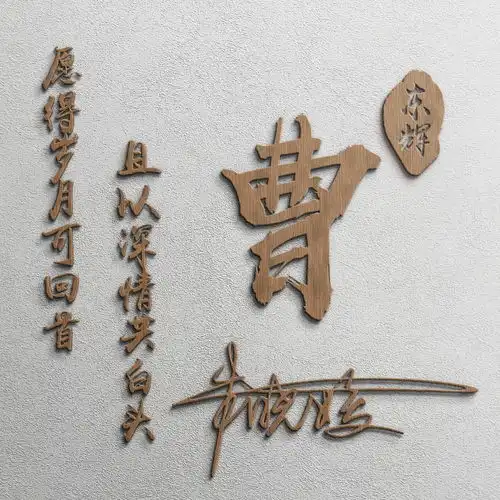 愿得岁月可回首
且以深情共白头
曹
东辉